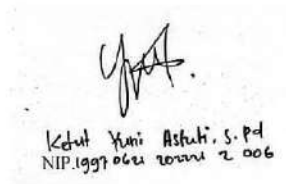 Ketut Yuni Astuti, S.Pd
NIP.19970621 202221 2 006